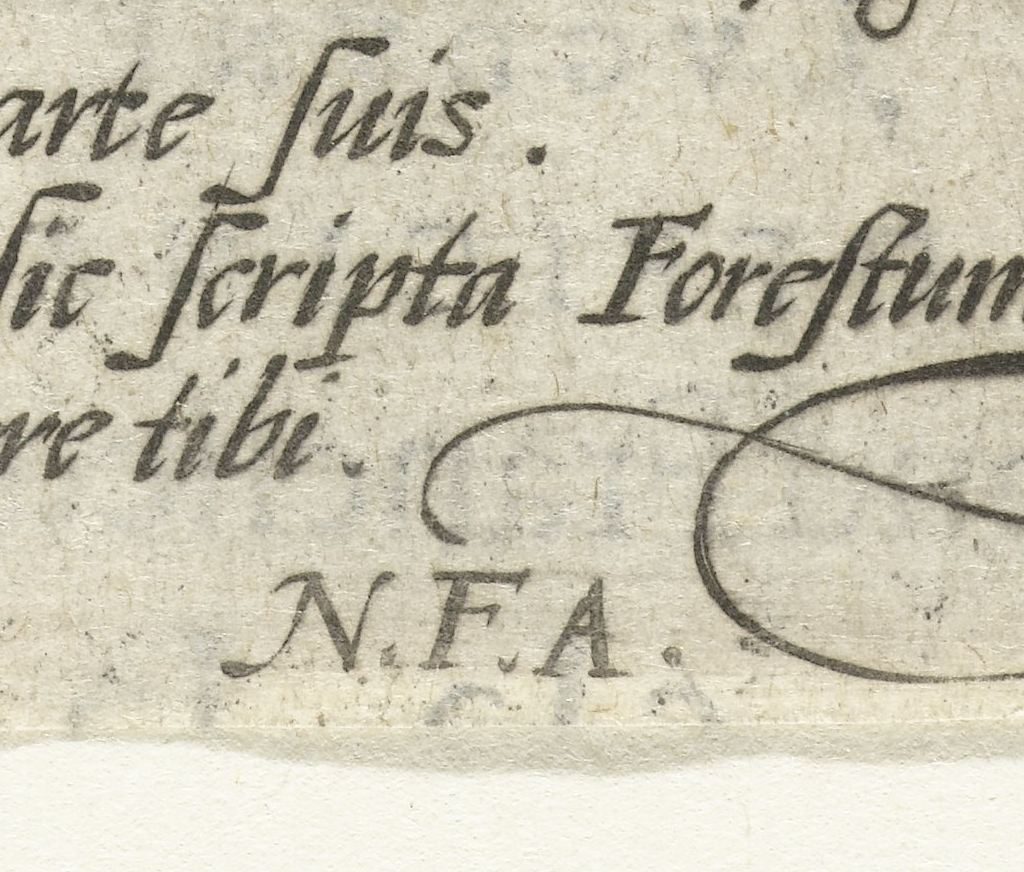 arte ſuis.
ſic ſcripta Foreſtum
re tibi.
N.F.A.